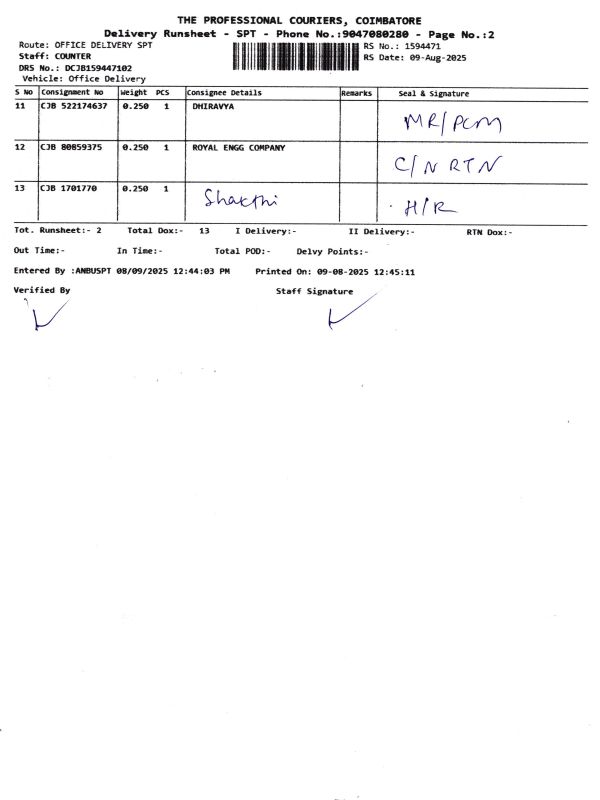 THE PROFESSIONAL COURIERS, COIMBATORE
Delivery Runsheet - SPT - Phone No.:9047080280 - Page No.:2
Route: OFFICE DELIVERY SPT RS No.: 1594471
Staff: COUNTER RS Date: 09-Aug-2025
DRS No.: DCJB159447102
Vehicle: Office Delivery
S No Consignment No Weight PCS Consignee Details Remarks Seal & Signature
11 CJB 522174637 0.250 1 DHIRAVYA
MR/PCM
12 CJB 80859375 0.250 1 ROYAL ENGG COMPANY
C/N RTN
13 CJB 1701770 0.250 1 Shakthi H/R
Tot. Runsheet:- 2 Total Dox:- 13 I Delivery:- II Delivery:- RTN Dox:-
Out Time:- In Time:- Total POD:- Delvy Points:-
Entered By :ANBUSPT 08/09/2025 12:44:03 PM Printed On: 09-08-2025 12:45:11
Verified By Staff Signature